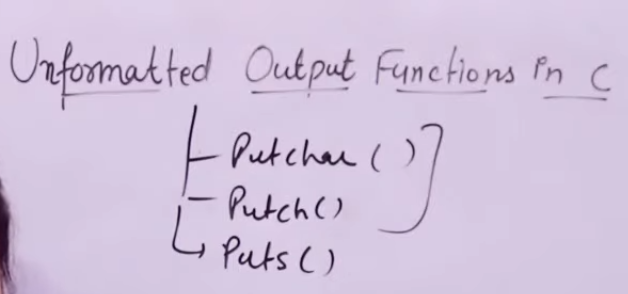 Unformatted Output Functions in C
Putchar ( )
Putch ( )
Puts ( )